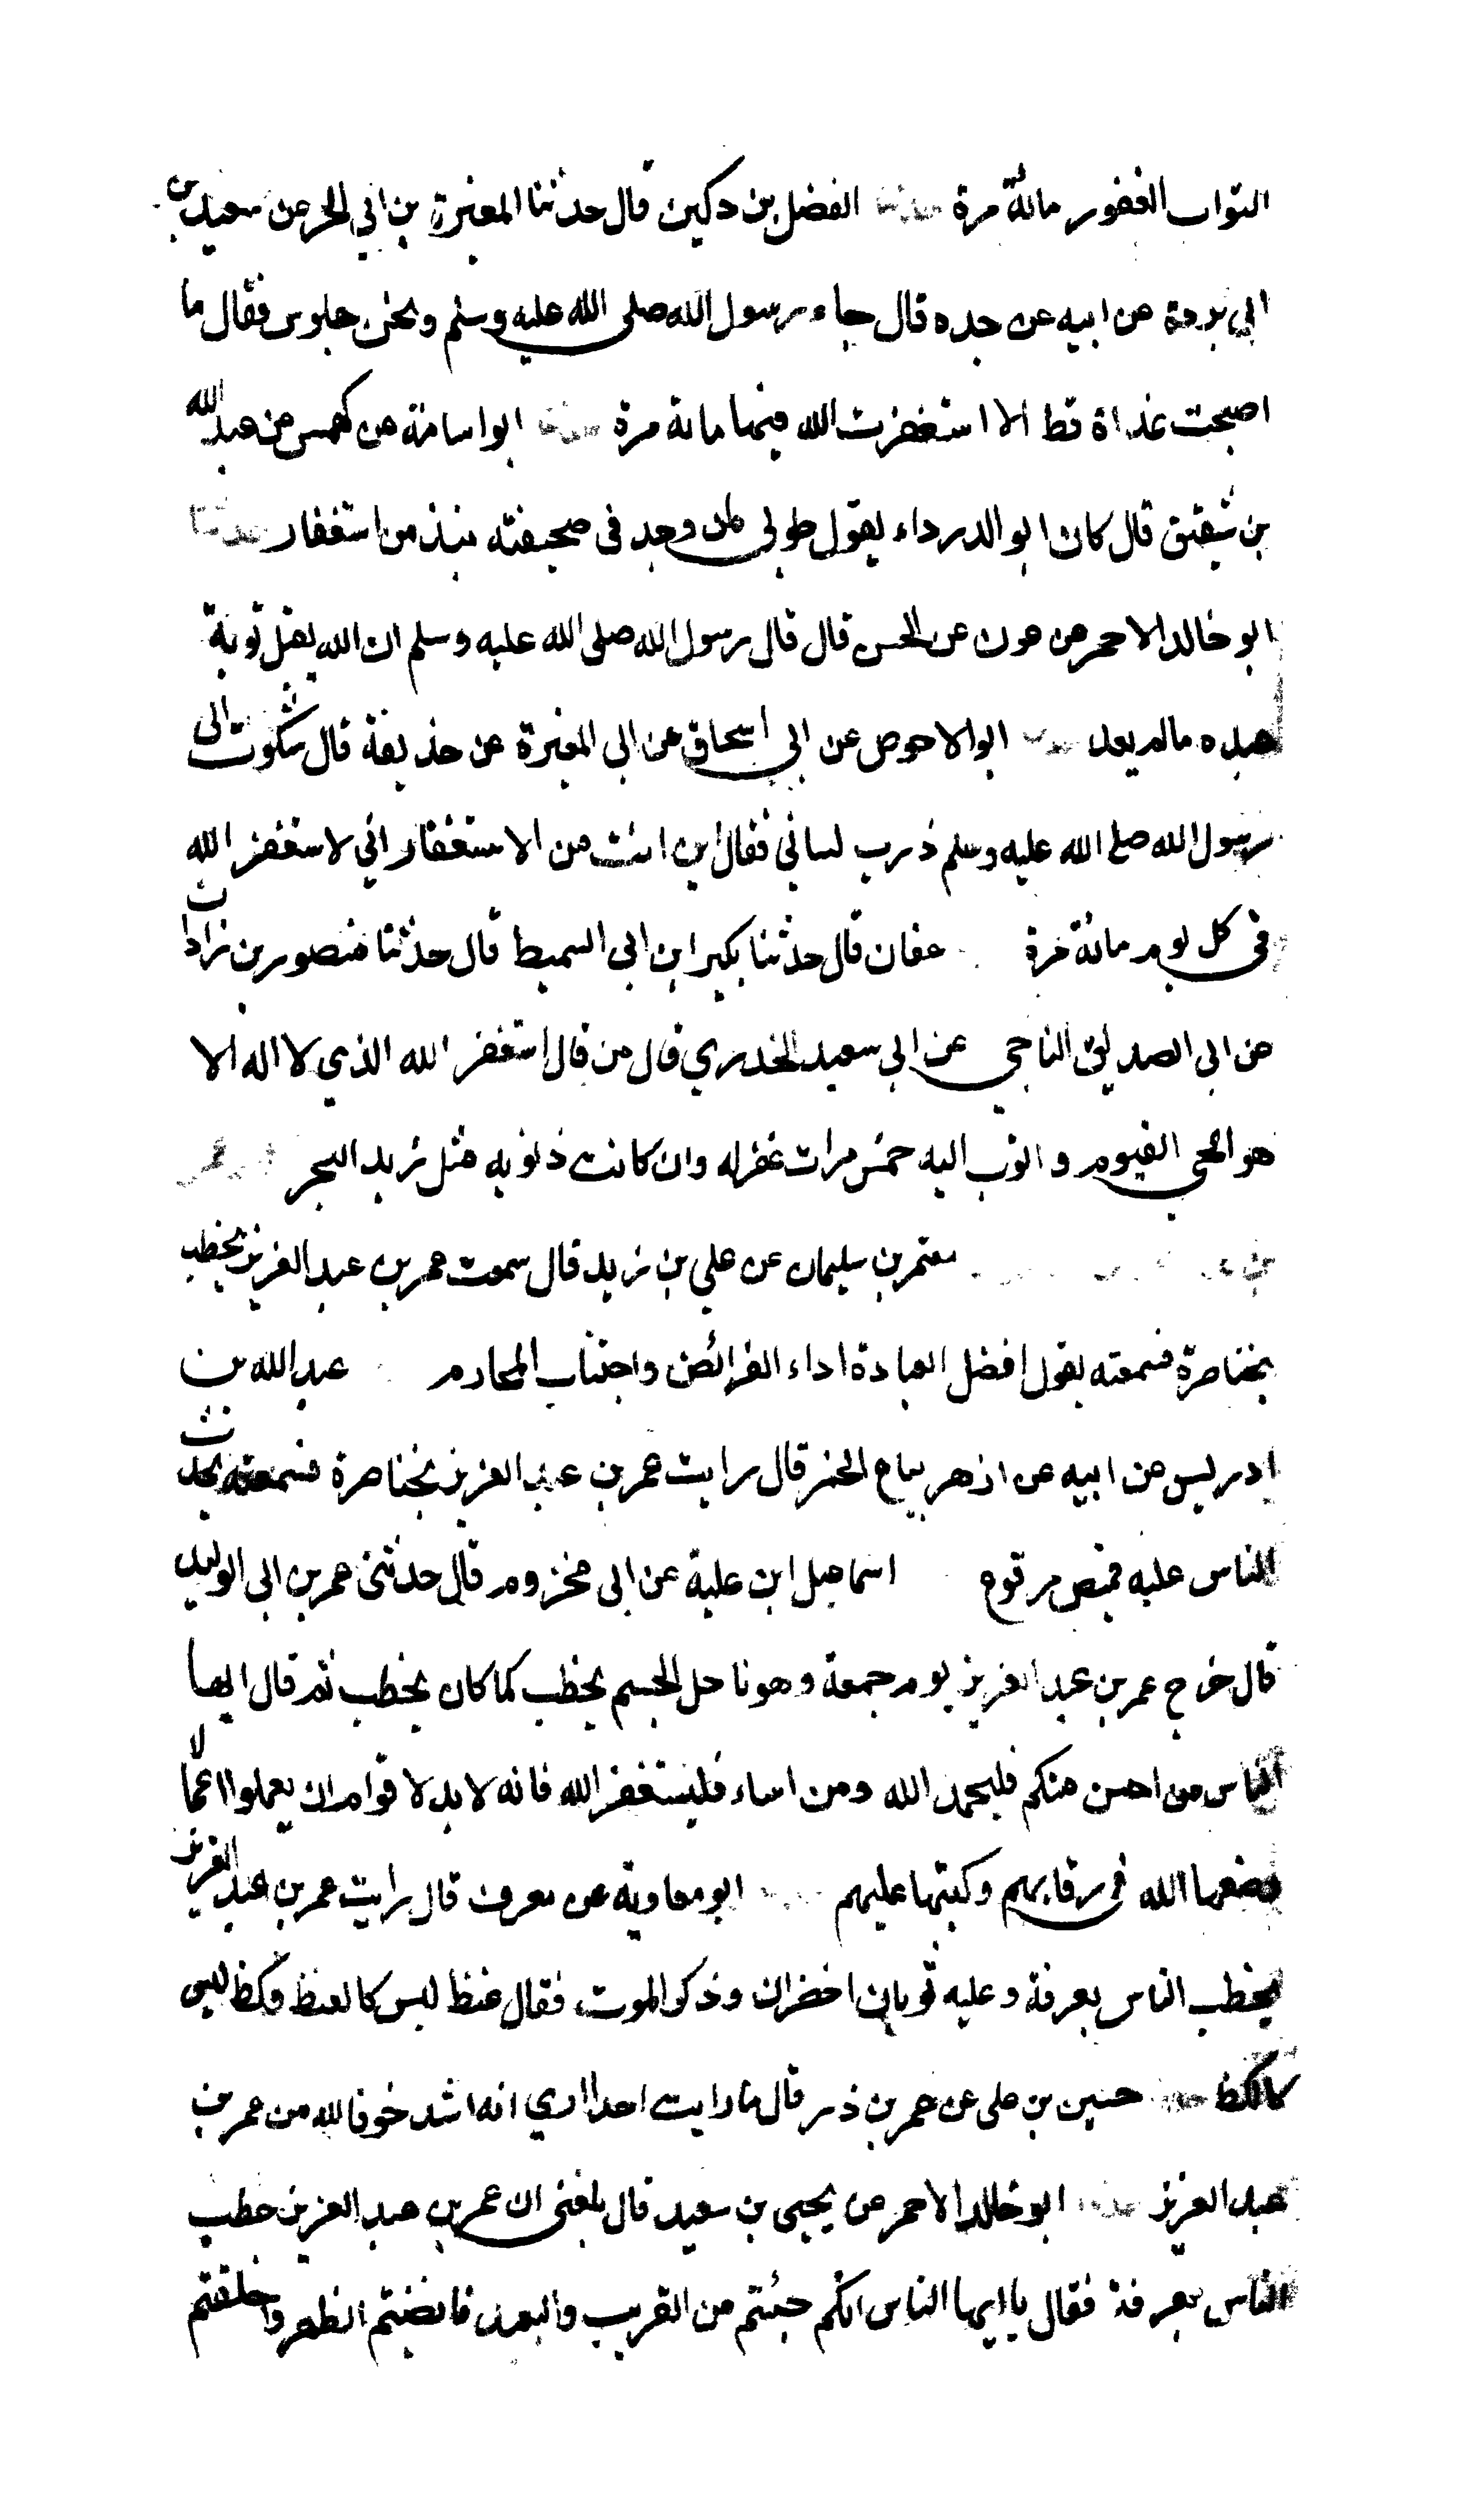 التواب الغفور مائة مرة حدثنا الفضل بن دكين قال حدثنا المغيرة بن ابي الحر عن سعيد بن
ابي بردة عن ابيه عن جده قال جاء رسول الله صلى الله عليه وسلم ونحن جلوس فقال ما
اصبحت غداة قط الا استغفرت الله فيها مائة مرة حدثنا ابو اسامة عن كهمس عن عبد الله
بن شقيق قال كان ابو الدرداء يقول طوبى لمن وجد في صحيفته نبذ من استغفار حدثنا
ابو خالد الاحمر عن عون عن الحسن قال قال رسول الله صلى الله عليه وسلم ان الله يقبل توبة
عبده مالم يعد ابو الاحوص عن ابي اسحاق عن ابي المغيرة عن حذيفة قال شكوت الى
رسول الله صلى الله عليه وسلم ذرب لساني فقال اين انت من الاستغفار اني لاستغفر الله
في كل يوم مائة مرة عفان قال حدثنا بكير ابن ابي السميط قال حدثنا منصور بن زاذان
عن ابي الصديق الناجي عن ابي سعيد الخدري قال من قال استغفر الله الذي لا اله الا
هو الحي القيوم واتوب اليه خمس مرات غفر له وان كانت ذنوبه مثل زبد البحر
معتمر بن سليمان عن علي بن زيد قال سمعت عمر بن عبد العزيز يخطب
بخناصرة فسمعته يقول افضل العبادة اداء الفرائض واجتناب المحارم عبد الله بن
ادريس عن ابيه عن ازهر بياع الخمر قال رايت عمر بن عبد العزيز بخناصرة فسمعته يحدث
الناس عليه قميص مرقوع اسماعيل ابن علية عن ابي مخزوم قال حدثني عمر بن ابي الوليد
قال خرج عمر بن عبد العزيز يوم جمعة وهو ناحل الجسم يخطب كما كان يخطب ثم قال ايها
الناس من احسن منكم فليحمد الله ومن اساء فليستغفر الله فانه لا بد لاقوام ان يعملوا اعمالا
وضعها الله في رقابهم وكتبها عليهم ابو معاوية عن معرف قال رايت عمر بن عبد العزيز
يخطب الناس بعرفة وعليه ثوبان اخضران وذكر الموت فقال غنظ ليس كالغنظ وكظ ليس
كالكظ حدثنا حسين بن علي عن عمر بن ذر قال ما رايت احدا اري انه اشد خوفا لله من عمر بن
عبد العزيز حدثنا ابو خالد الاحمر عن يحيى بن سعيد قال بلغني ان عمر بن عبد العزيز خطب
الناس بعرفة فقال يا ايها الناس انكم جئتم من القريب والبعيد فانضيتم الظهر واخلقتم